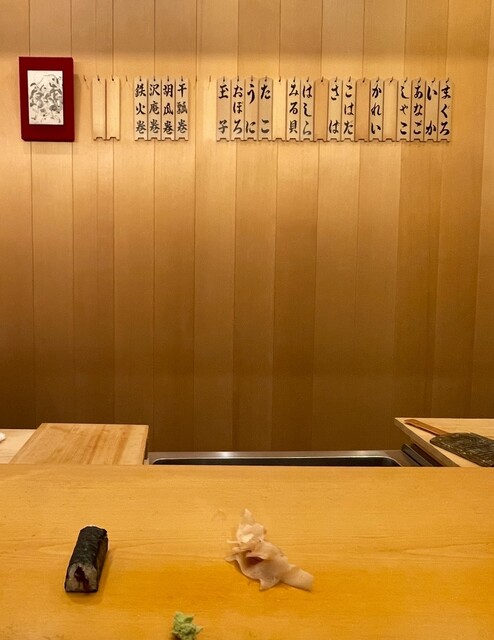 まぐろ
いか
あなご
しゃこ
かれい
こはだ
さば
はしら
みる貝
たこ
うに
おぼろ
玉子
干瓢巻
胡瓜巻
沢庵巻
鉄火巻